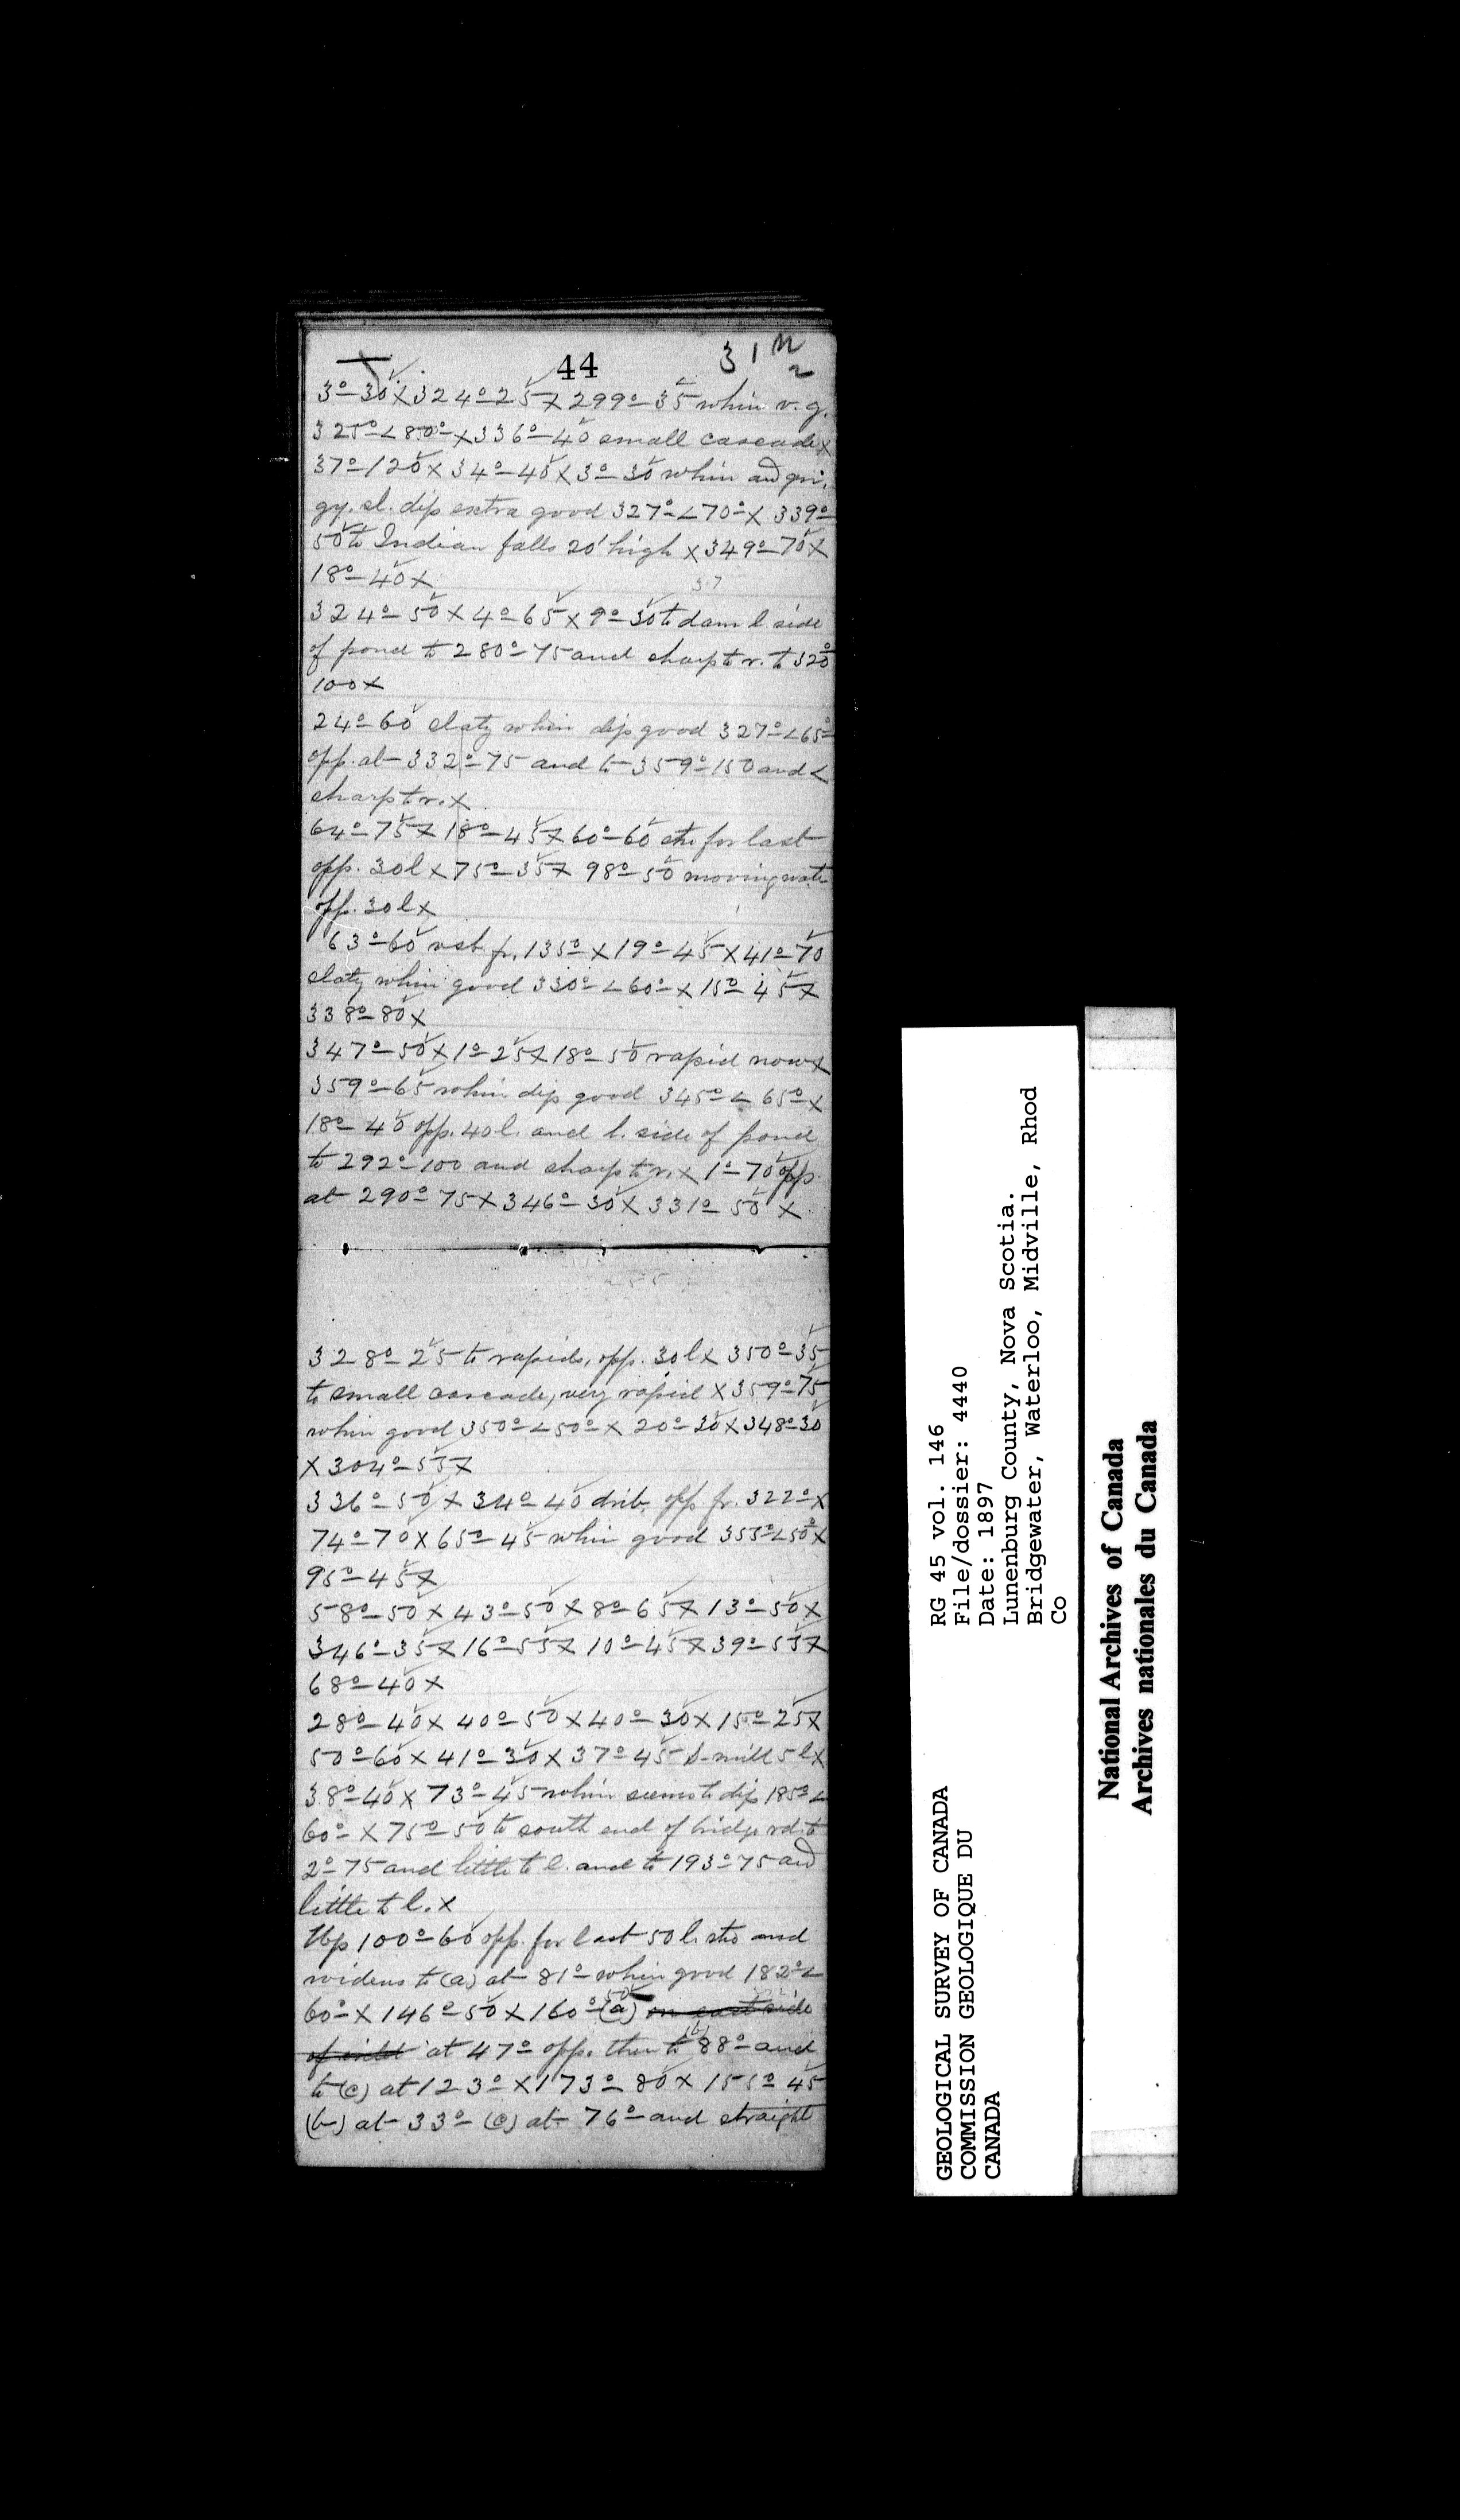 44
31
3º-30 X 324º-25 X 299º-35 whin v. g.
325º<80º X 336º-40 small cascade X
37º-120 X 34º-40 X 3º-30 whin and
gy. sl. dip extra good 327º<70º X 339º
50 to Indian falls 20' high X 349º-70 X
18º-40 X
37
324º-50 X 4º-65 X 9º-30 to dam l. side
of pond to 280º-75 and sharp to r. to 320º
100 X
24º-60 slaty whin dip good 327º<65º
opp. at 332º-75 and to 359º-150 and <
sharp to r. X
64º-75 X 18º-45 X 60º-60 sts for last
opp. 30 l X 75º-35 X 98º-50 moving wate
opp. 30 l X
63º-60 fr. 135º X 19º-45 X 41º-70
slaty whin good 330º<60º X 15º-45 X
338º-80 X
347º-50 X 1º-25 X 18º-50 rapid now X
359º-65 whin dip good 345º<65º X
18º-40 opp. 40 l. and l. side of pond
to 292º-100 and sharp to r. X 1º-70 opp.
at 290º 75 X 346º-30 X 331º 50 X
328º-25 to rapids, opp. 30 l X 350º-35
to small cascade, very rapid X 359º-75
whin good 350º<50º X 20º-30 X 348º-30
X 304º-55 X
336º-50 X 34º-40 drib. opp. fr. 322º X
74º-70 X 65º-45 whin good 355º<50º X
95º-45 X
58º-50 X 43º-50 X 8º-65 X 13º-50 X
346º-35 X 16º-55 X 10º-45 X 39º-55 X
68º-40 X
28º-40 X 40º-50 X 40º-30 X 15º-25 X
50º-60 X 41º-30 X 37º-45 s-mill 5 l X
38º-40 X 73º-45 whin seems to dip 185º<
60º X 75º-50 to south end of bridge rd. to
2º-75 and little to l. and to 193º-75 and
little to l. X
Up 100º-60 opp. for last 50 l. sts and
widens to (a) at 81º whin good 182º<
60º X 146º-50 X 160º-50 (a) on east side
of inlet at 47º opp. then to (b) 88º and
to (c) at 123º X 173º-80 X 155º 45
(b) at 33º (c) at 76º and straight
RG 45 vol. 146
File/dossier: 4440
Date: 1897
Lunenburg County, Nova Scotia.
Bridgewater, Waterloo, Midville, Rhod
Co
GEOLOGICAL SURVEY OF CANADA
COMMISSION GEOLOGIQUE DU
CANADA
National Archives of Canada
Archives nationales du Canada